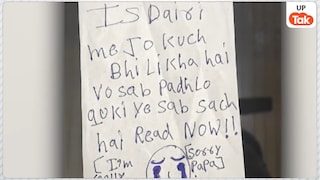 UP
Tak
Is Dairi
me Jo kuch
Bhi Likha hai
Vo sab Padhlo
quki ye sab sach
hai Read Now!!
[I'm [Sorry
really Papa]